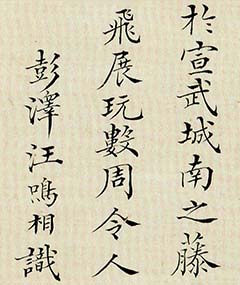 於宣武城南之藤
飛展玩數周令人
彭澤汪鳴相識